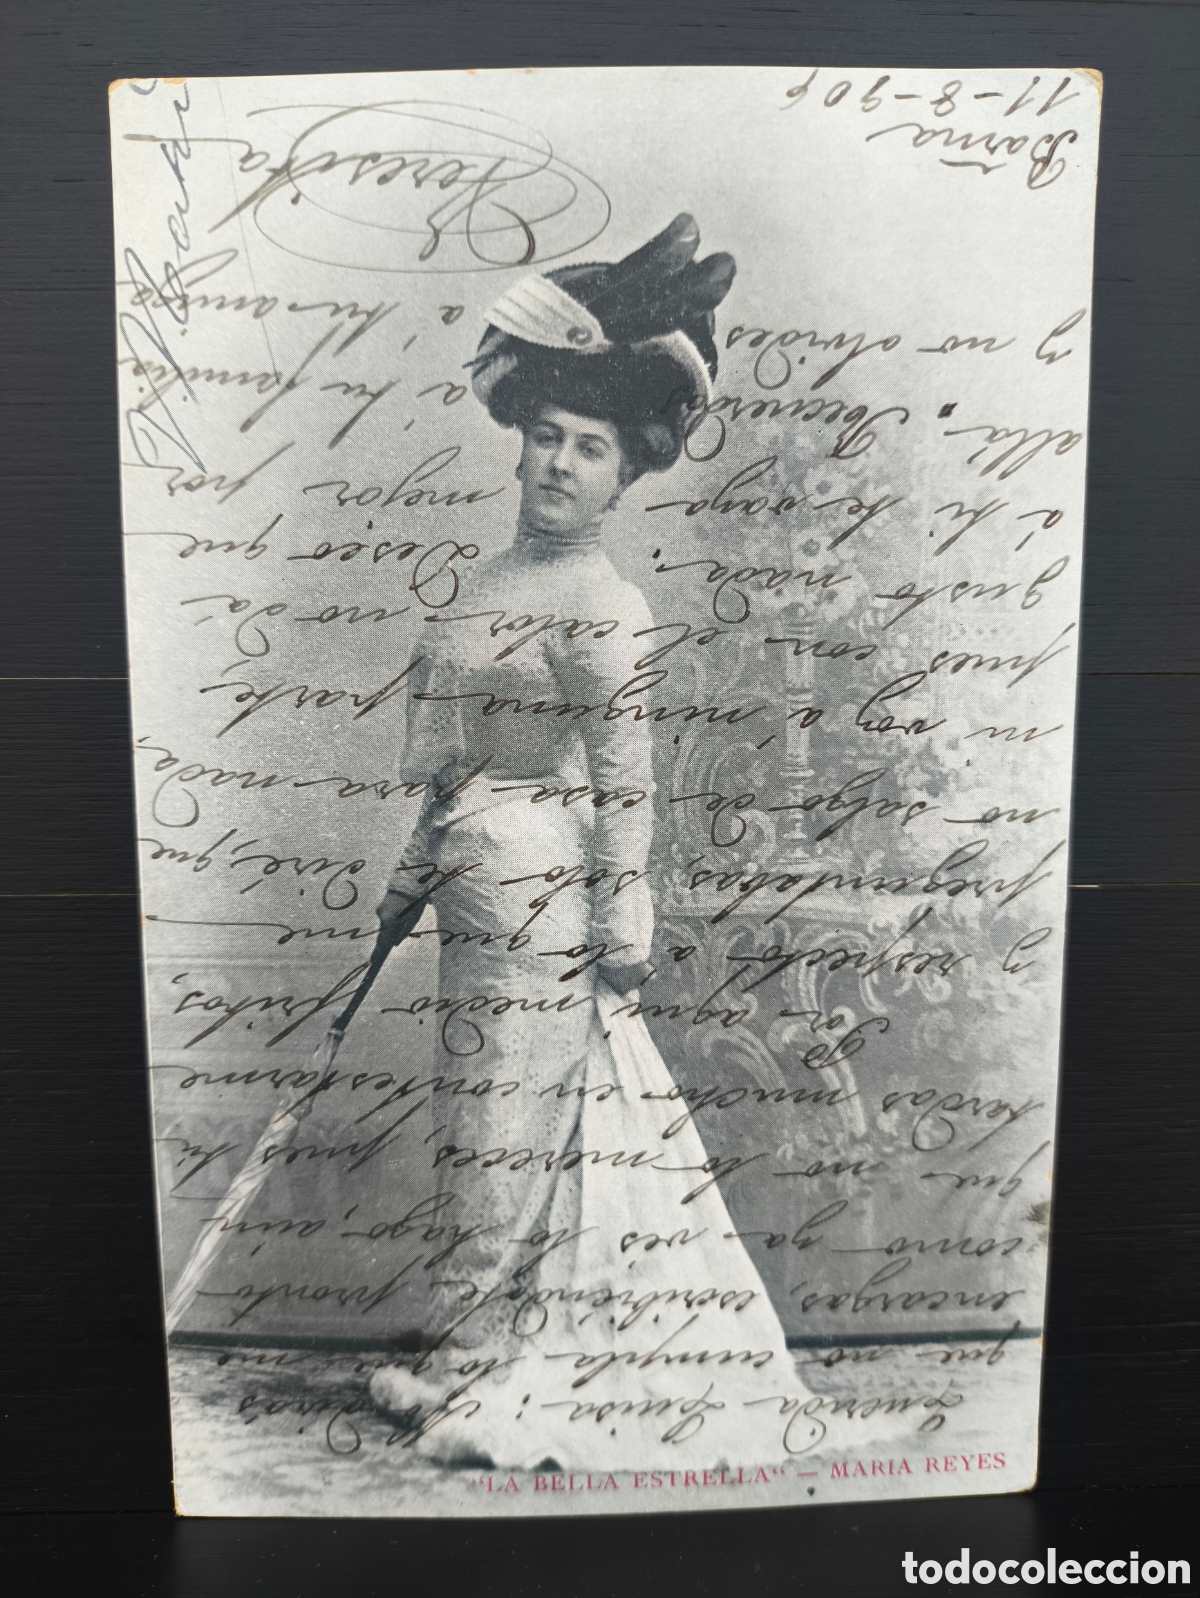 "LA BELLA ESTRELLA" — MARIA REYES
Querida Luisa: No dirás
que no cumpla lo que me
encargas, escribiéndote pronto
como ya ves lo hago, aún
que no lo mereces, pues tú
tardas mucho en contestarme
Por aquí medio fritos,
y respecto á lo que me
preguntabas, solo te diré, que
no salgo de casa para nada,
ni voy á ninguna parte,
pues con el calor no dá
gusto nada. Deseo que
á ti te vaya mejor por
allá. Recuerdos á tu familia
y no olvides á tu amiga
Teresita
Barna
11-8-906
todocoleccion